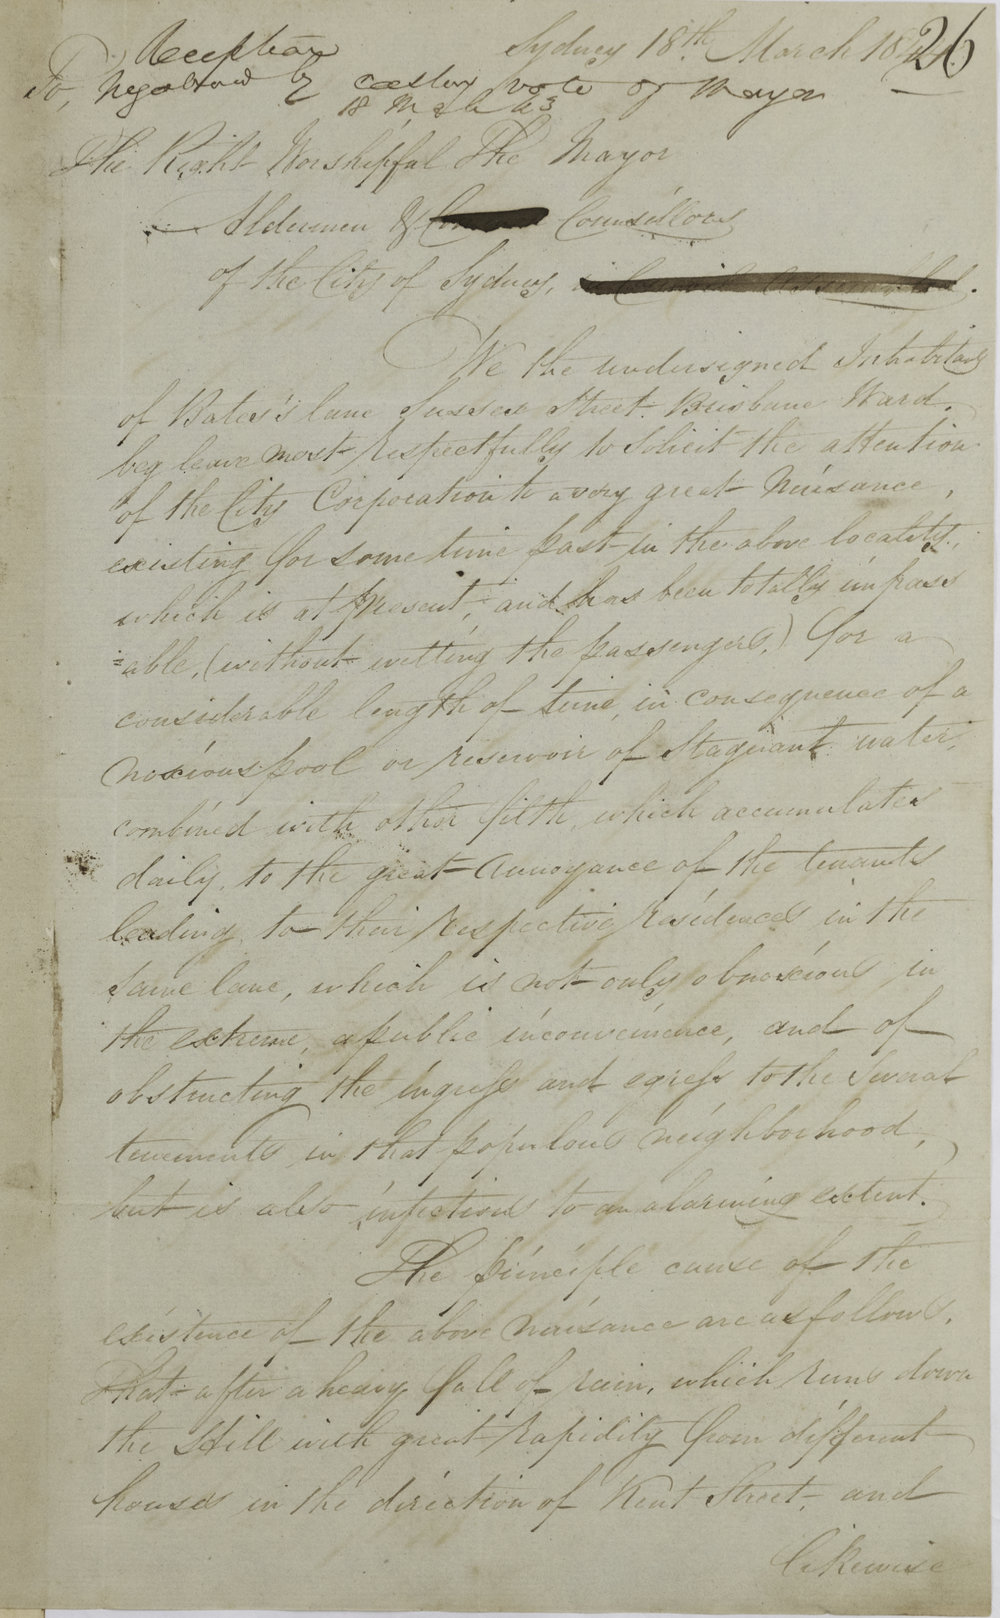 Sydney 18th. March 18
26
Reception
To, Negatived by casting vote of Mayor
18 March 43
The Right Worshipful The Mayor
Aldermen & Counsillors
of the City of Sydney,
We the undersigned Inhabitants
of Bates's lane Sussex Street Brisbane Ward,
beg leave most respectfully to solicit the attention
of the City Corporation to a very great Nuisance,
existing for some time past in the above locality,
which is at present, and has been totally impass
=able, (without wetting the passengers,) for a
considerable length of time, in consequence of a
noxious pool or reservoir of Stagnant water,
combined with other filth, which accumulates
daily, to the great Annoyance of the tenants
leading to their respective residences in the
same lane, which is not only obnoxious in
the extreme, a public inconvenience, and of
obstructing the ingress and egress to the several
tenements in that populous neighborhood,
but is also infectious to an alarming extent.
The principle cause of the
existence of the above Nuisance are as follows,
That after a heavy fall of rain, which runs down
the Hill with great rapidity from different
houses in the direction of Kent Street, and
likewise